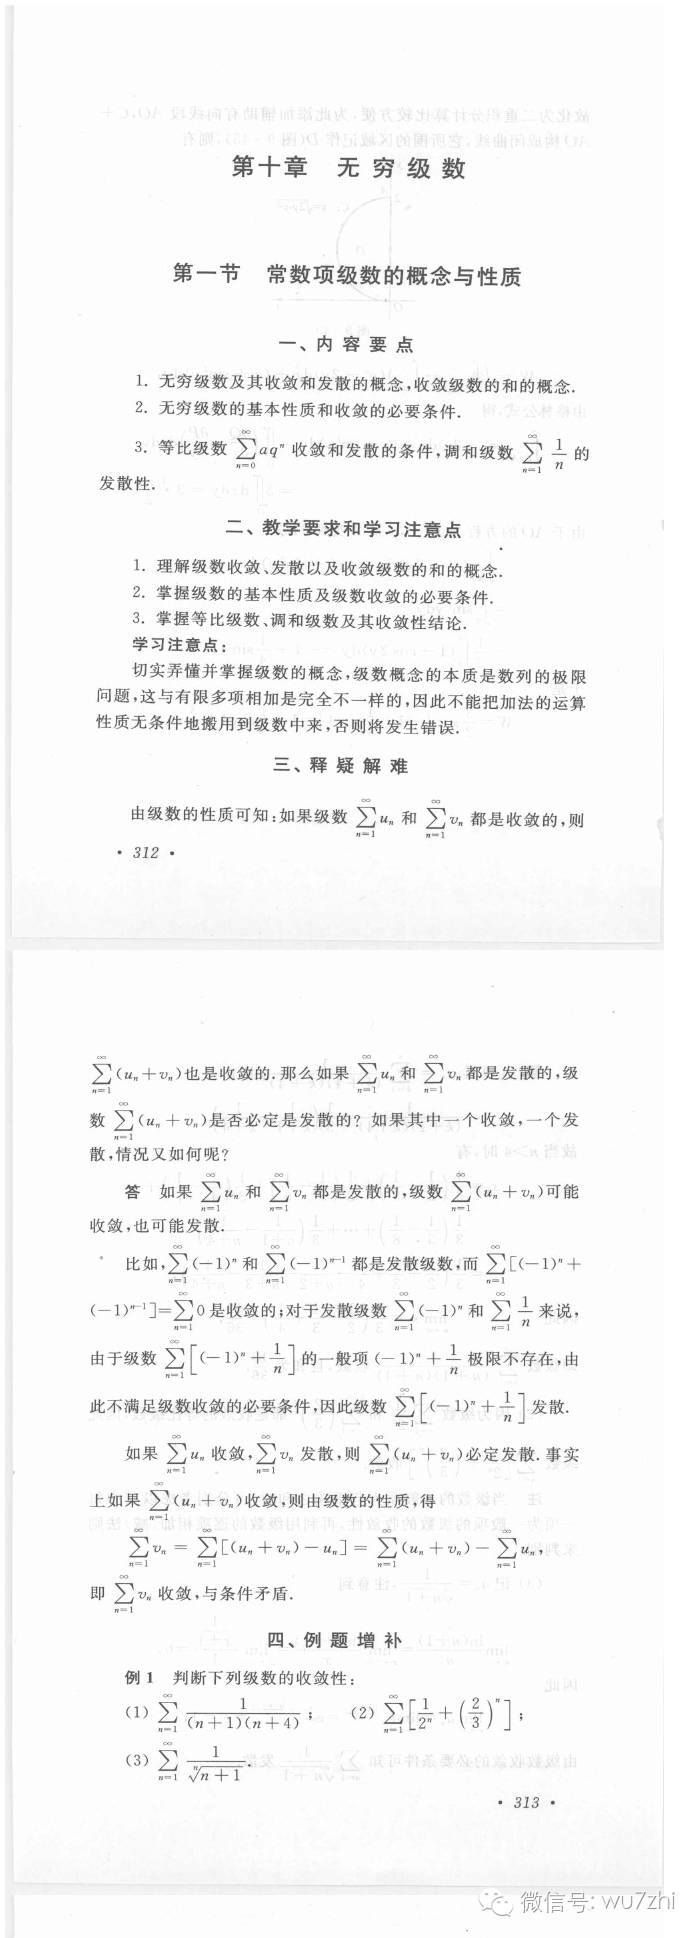 第十章 无穷级数
第一节 常数项级数的概念与性质
一、内容要点
1. 无穷级数及其收敛和发散的概念,收敛级数的和的概念.
2. 无穷级数的基本性质和收敛的必要条件.
3. 等比级数 ∑_{n=0}^{∞} aqⁿ 收敛和发散的条件,调和级数 ∑_{n=1}^{∞} 1/n 的
发散性.
二、教学要求和学习注意点
1. 理解级数收敛、发散以及收敛级数的和的概念.
2. 掌握级数的基本性质及级数收敛的必要条件.
3. 掌握等比级数、调和级数及其收敛性结论.
学习注意点:
切实弄懂并掌握级数的概念,级数概念的本质是数列的极限
问题,这与有限多项相加是完全不一样的,因此不能把加法的运算
性质无条件地搬用到级数中来,否则将发生错误.
三、释疑解难
由级数的性质可知:如果级数 ∑_{n=1}^{∞} uₙ 和 ∑_{n=1}^{∞} vₙ 都是收敛的,则
· 312 ·
∑_{n=1}^{∞} (uₙ+vₙ)也是收敛的.那么如果 ∑_{n=1}^{∞} uₙ 和 ∑_{n=1}^{∞} vₙ 都是发散的,级
数 ∑_{n=1}^{∞} (uₙ+vₙ)是否必定是发散的?如果其中一个收敛,一个发
散,情况又如何呢?
答 如果 ∑_{n=1}^{∞} uₙ 和 ∑_{n=1}^{∞} vₙ 都是发散的,级数 ∑_{n=1}^{∞} (uₙ+vₙ)可能
收敛,也可能发散.
比如,∑_{n=1}^{∞} (-1)ⁿ 和 ∑_{n=1}^{∞} (-1)ⁿ⁻¹ 都是发散级数,而 ∑_{n=1}^{∞} [(-1)ⁿ+
(-1)ⁿ⁻¹]=∑_{n=1}^{∞} 0 是收敛的;对于发散级数 ∑_{n=1}^{∞} (-1)ⁿ 和 ∑_{n=1}^{∞} 1/n 来说,
由于级数 ∑_{n=1}^{∞} [(-1)ⁿ+1/n] 的一般项 (-1)ⁿ+1/n 极限不存在,由
此不满足级数收敛的必要条件,因此级数 ∑_{n=1}^{∞} [(-1)ⁿ+1/n] 发散.
如果 ∑_{n=1}^{∞} uₙ 收敛,∑_{n=1}^{∞} vₙ 发散,则 ∑_{n=1}^{∞} (uₙ+vₙ)必定发散.事实
上如果 ∑_{n=1}^{∞} (uₙ+vₙ)收敛,则由级数的性质,得
∑_{n=1}^{∞} vₙ = ∑_{n=1}^{∞} [(uₙ+vₙ)-uₙ] = ∑_{n=1}^{∞} (uₙ+vₙ) - ∑_{n=1}^{∞} uₙ,
即 ∑_{n=1}^{∞} vₙ 收敛,与条件矛盾.
四、例题增补
例1 判断下列级数的收敛性:
(1) ∑_{n=1}^{∞} 1/((n+1)(n+4)); (2) ∑_{n=1}^{∞} [1/2ⁿ+(2/3)ⁿ];
(3) ∑_{n=1}^{∞} 1/ⁿ√(n+1).
· 313 ·
微信号: wu7zhi